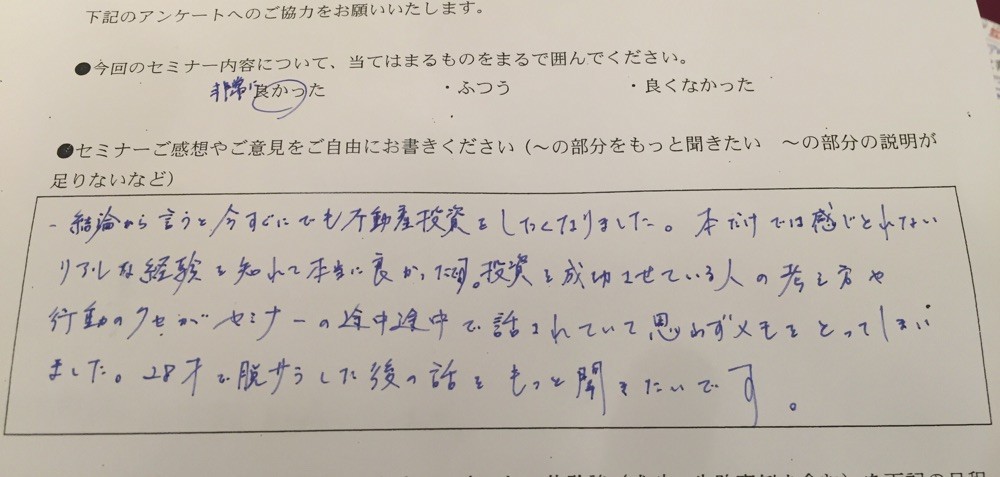 下記のアンケートへのご協力をお願いいたします。
●今回のセミナー内容について、当てはまるものをまるで囲んでください。
非常に良かった ・ふつう ・良くなかった
●セミナーご感想やご意見をご自由にお書きください（～の部分をもっと聞きたい　～の部分の説明が
足りないなど）
- 結論から言うと今すぐにでも不動産投資をしたくなりました。本だけでは感じとれない
リアルな経験を知れて本当に良かったです。投資を成功させている人の考え方や
行動のクセがセミナーの途中途中で話されていて思わずメモをとってしまい
ました。28才で脱サラした後の話をもっと聞きたいです。